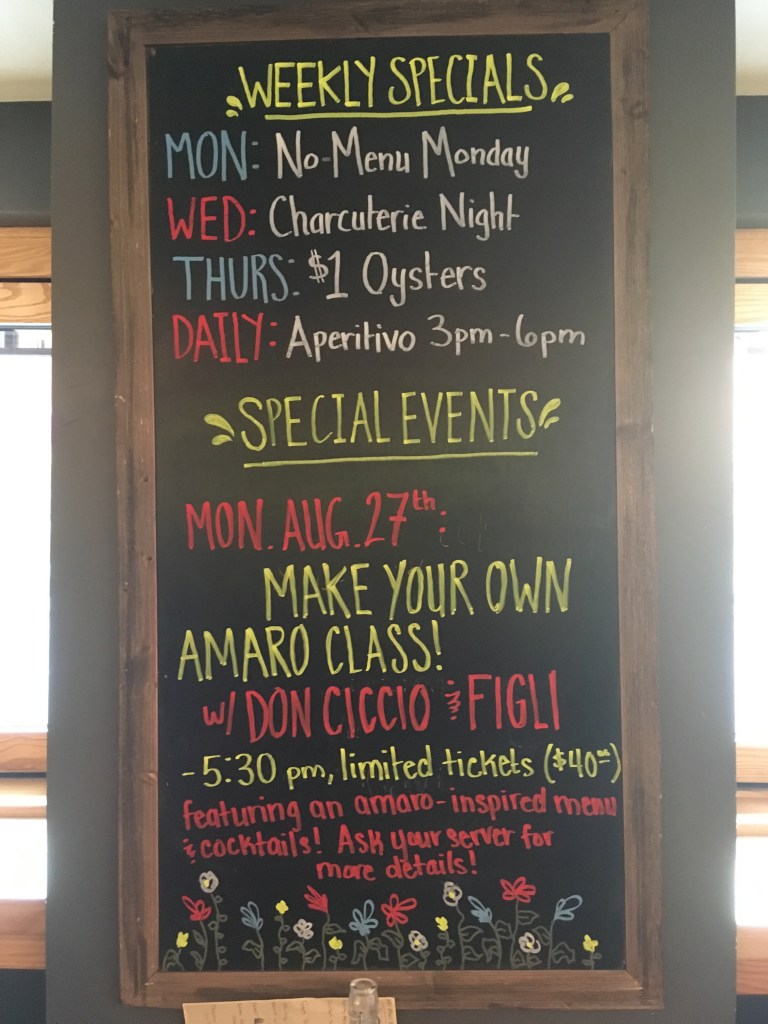 WEEKLY SPECIALS
MON: No-Menu Monday
WED: Charcuterie Night
THURS: $1 Oysters
DAILY: Aperitivo 3pm-6pm
SPECIAL EVENTS
MON. AUG. 27th:
MAKE YOUR OWN
AMARO CLASS!
w/ DON CICCIO & FIGLI
-5:30 pm, limited tickets ($40⁰⁰)
featuring an amaro-inspired menu
& cocktails! Ask your server for
more details!